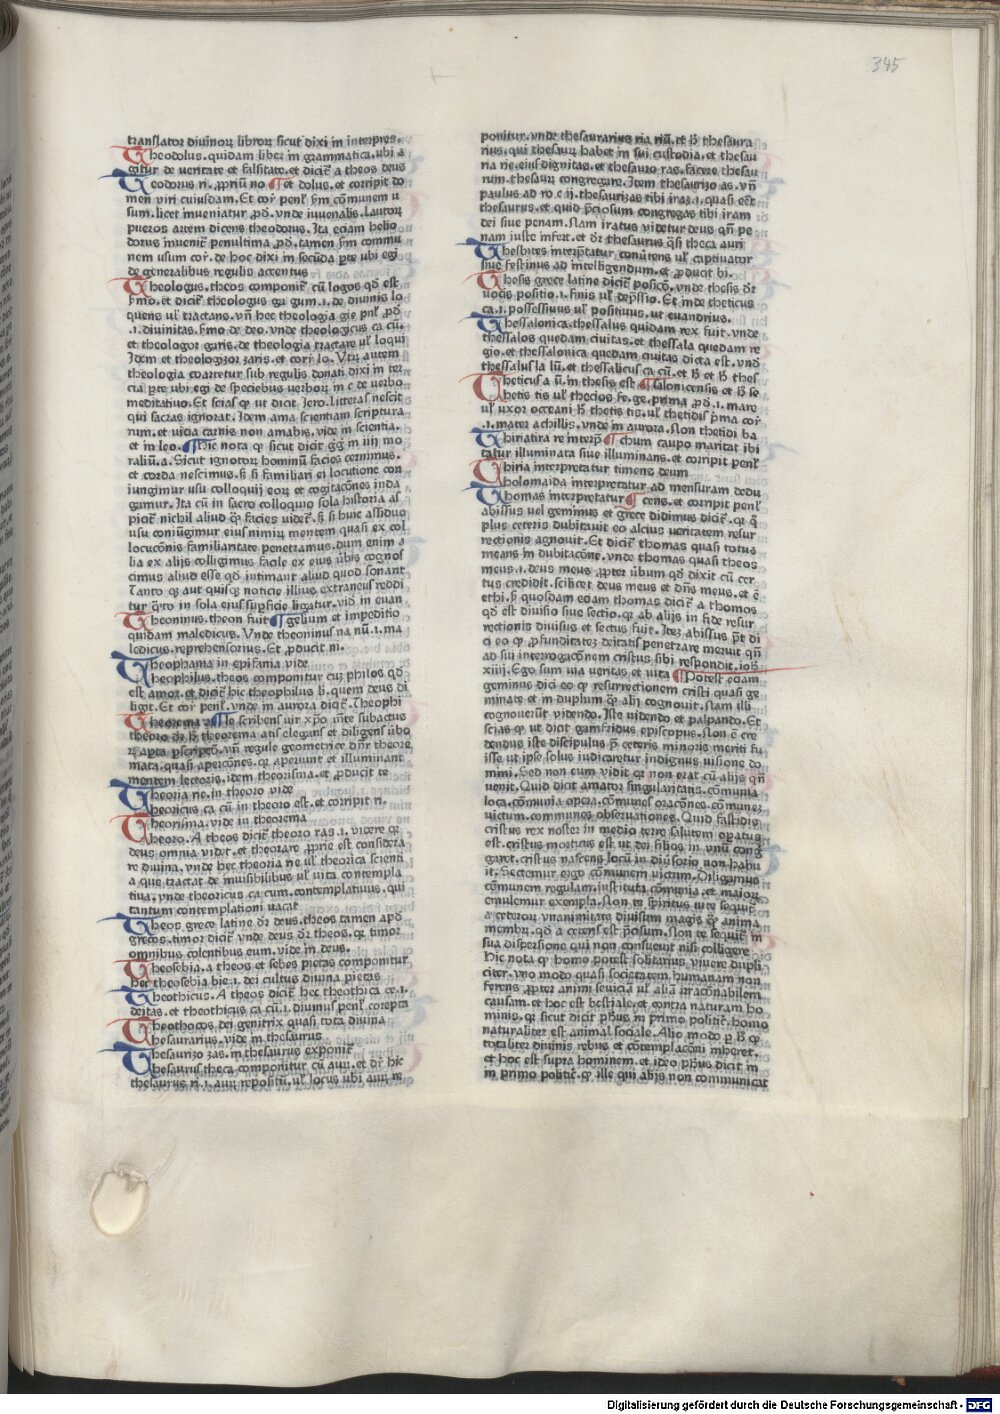 345
translator diuinoꝝ libroꝝ sicut dixi in interpres.
Theodolus. quidam liber in grammatica. ubi a
gitur de ueritate et falsitate. et dicit᷑ a theos deus
Teodorus ri. ꝓpriū no ¶ et dolus. et corripit do
men viri cuiusdam. Et cor̄ penl̄ s̄m cōmunem u
sum. licet inueniatur ꝓd̄. vnde iuuenalis. Lautoꝝ
pueros artem dicens theodorus. Ita eciam helio
dorus inuenit᷑ penultima ꝓd̄. tamen s̄m commu
nem usum cor̄. de hoc dixi in secūda p̲te ubi egi
de generalibus regulis accentus
Theologus. theos componit᷑ cū logos qd̄ est
s̄mo. et dicit᷑ theologus ga gum .i. de diuinis lo
quens ul̓ tractans. vn̄ hec theologia gie penl̄ ꝓd̄
.i. diuinitas. s̄mo de deo. vnde theologicus ca cū.
et theologor garis. de theologia tractare ul̓ loqui
Idem et theologizor zaris. et cor̄ lo. Vtꝝ autem
theologia coartetur sub regulis donati dixi in ter
cia p̲te ubi egi de speciebus uerboꝝ in c̄ de uerbo
meditatiuo. Et scias ꝙ ut dicit Jero. Litteras nescit
qui sacras ignorat. Idem ama scientiam scriptura
rum. et uicia carnis non amabis. vide in scientia.
et in leo. ¶ Hic nota ꝙ sicut dicit gḡ in iiij mo
raliū. a. Sicut ignotoꝝ hominū facies cernimus.
et corda nescimus. s̄ si familiari ei locutione con
iungimur usu colloquij eoꝝ et cogitacōnes inda
gamur. Ita cū in sacro colloquio sola historia as
picit᷑ nichil aliud ꝙ̄ facies videt᷑. s̄ si huic assiduo
usu coniūgimur eius nimiꝝ mentem quasi ex col
locucōnis familiaritate penetramus. dum enim a
lia ex alijs colligimus facile ex eius ūbis cognos
cimus aliud esse qd̄ intimant aliud quod sonant
Tanto ꝙ aut quisꝙ noticie illius extraneus reddi
tur q̄nto in sola eius suꝑficie ligatur. vid̄ in euan
Theoninus. theon fuit ¶ gelium et impeditio
quidam maledicus. Vnde theoninus na nū .i. ma
ledicus. reprehensorius. Et ꝓducit ni.
Theophania in epifania vide
Theophilus. theos componitur cuꝫ philos qd̄
est amor. et dicit᷑ hic theophilus li. quem deus di
ligit. Et cor̄ penl̄. vnde in aurora dicit᷑. Theophi
Theorema a ¶ le scribens uir xp̄o m̄te subactus
theoro dr̄ h̄ theorema atis elegans et diligens ūbo
ꝝ apta ꝑscriptō. vn̄ regule geometrice dn̄r theore
mata. quasi apercōnes. qꝛ aperiunt et illuminant
mentem lectoris. idem theorisma. et ꝓducit te
Theoria ne. in theoro vide
Theoricus ca cū in theoro est. et corripit ri.
Theorisma. vide in theorema
Theoro. A theos dicit᷑ theoro ras .i. videre qꝛ
deus omnia videt. et theorare ꝓprie est considera
re diuina. vnde hec theoria rie ul̓ theorica scienti
a que tractat de inuisibilibus ul̓ vita contempla
tiua. vnde theoricus ca cum. contemplatiuus. qui
tantum contemplationi uacat
Theos grece latine dr̄ deus. theos tamen apd̄
grecos. timor dicit᷑ vnde deus dr̄ theos. qꝛ timor
omnibus colentibus eum. vide in deus.
Theosebia. a theos et sebes pietas componitur
hec theosebia bie .i. dei cultus diuina pietas
Theothicus. A theos dicit᷑ hec theothica ce .i.
deitas. et theothicus ca cū .i. diuinus penl̄ correpta
Theothocos dei genitrix quasi tota diuina
Thesaurarius. vide in thesaurus
Thesaurizo zas. in thesaurus exponit᷑
Thesaurus theca componitur cū auꝝ. et dr̄ hic
thesaurus ri .i. auꝝ repositū. ul̓ locus ubi auꝝ re
ponitur. vnde thesaurarius ria riū. et h̄ thesaura
rius. qui thesauꝝ habet in sui custodia. et thesau
ria rie. eius dignitas. et thesauro ras. facere thesau
rum. thesauꝝ congregare. Item thesaurizo as. vn̄
paulus ad ro c̄ ij. thesaurizas tibi iraꝫ .i. quasi eēt
thesaurus. et quid p̄ciosum congregas tibi iram
dei siue penam. Nam iratus videtur deus qn̄ pe
nam iuste infert. et dr̄ thesaurus q̄si theca auri
Thesbites interp̄tatur conūtens ul̓ captiuator
siue festinus ad intelligendum. et ꝓducit bi.
Thesis grece latine dicit᷑ posicō. vnde thesis dr̄
uocis positio .i. finis ul̓ dep̄ssio. Et inde theticus
ca .i. possessiuus ul̓ positiuus. ut euandrius.
Thessalonica. thessalus quidam rex fuit. vnde
thessalos quedam ciuitas. et thessala quedam re
gio. et thessalonica quedam ciuitas dicta est. vnd̄
thessalus la lū. et thessalicus ca cū. et h̄ et h̄ thes
Theticus a ū. in thesis est ¶ salonicensis et h̄ se
Thetis tis ul̓ thecios se. ge. prima ꝓd̄ .i. mare
ul̓ uxor occeani h̄ thetis tis. ul̓ thetidis p̄ma cor̄
.i. mater achillis. vnde in aurora. Non thetidi ba
Thiriatira re interp̄ ¶ chum caupo maritat ibi
tatur illuminata siue illuminans. et corripit penl̄
Thiria interpretatur timens deum
Tholomaida interpretatur ad mensuram dedu
Thomas interpretatur ¶ cens. et corripit penl̄
abissus uel geminus et grece didimus dicit᷑. qꝛ q̄
plus ceteris dubitauit eo alcius ueritatem resur
rectionis agnouit. Et dicit᷑ thomas quasi totus
means in dubitacōne. vnde thomas quasi theos
meus .i. deus meus ꝓpter ūbum qd̄ dixit cū cer
tus credidit. scilicet deus meus et dn̄s meus. et ē
ethi. s̄ quosdam eciam thomas dicit᷑ a thomos
qd̄ est diuisio siue sectio. qꝛ ab alijs in fide resur
rectionis diuisus et sectus fuit. Iteꝫ abissus p̄t di
ci eo ꝙ ꝓfunditateꝫ deitatis penetrare meruit qn̄
ad sui interrogacōnem cristus sibi respondit. ioh̄
xiiij. Ego sum uia ueritas et uita ¶ Potest eciam
geminus dici eo ꝙ resurrectionem cristi quasi ge
minate et in duplum ꝙ̄ alij cognouit. Nam illi
cognouerūt videndo. Iste videndo et palpando. Et
scias ꝙ ut dicit gamfridus episcopus. Non ē cre
dendus iste discipulus p̄ ceteris minoris meriti fu
isse ut ipse solus iudicaretur indignus uisione do
mini. Sed non eum vidit qꝛ non erat cū alijs qn̄
uenit. Quid dicit amator singularitatis. cōmunia
loca. cōmunia opera. cōmunes oracōnes. cōmunes
uictum. communes obseruationes. Quid fastidis
cristus rex noster in medio terre salutem opatus
est. cristus mortuus est ut dei filios in vnū cong̓
garet. cristus nascens locū in diūsorio non habu
it. Sectemur ergo cōmunem uictum. Diligamus
cōmunem regulam. instituta cōmunia. et maioꝝ
emulemur exempla. Non te spiritus uite sequit᷑
a ceteroꝝ vnanimitate diuisum magis ꝙ̄ anima
membꝝ. qd̄ a ceteris est p̄cisum. Non te sequit᷑ in
sua dispersione qui non consueuit nisi colligere
Hic nota ꝙ homo potest solitarius viuere dupli
citer. vno modo quasi societatem humanam non
ferens ꝓpter animi seuiciā ul̓ aliā irracōnabilem
causam. et hoc est bestiale. et contra naturam ho
minis. qꝛ sicut dicit ph̄us in primo politic᷑. homo
naturaliter est animal sociale. Alio modo p̲ h̄ ꝙ
totaliter diuinis rebus et cōtemplacōni inheret.
et hoc est supra hominem. et ideo ph̄us dicit in
in primo politic᷑. ꝙ ille qui alijs non communicat
Digitalisierung gefördert durch die Deutsche Forschungsgemeinschaft - DFG